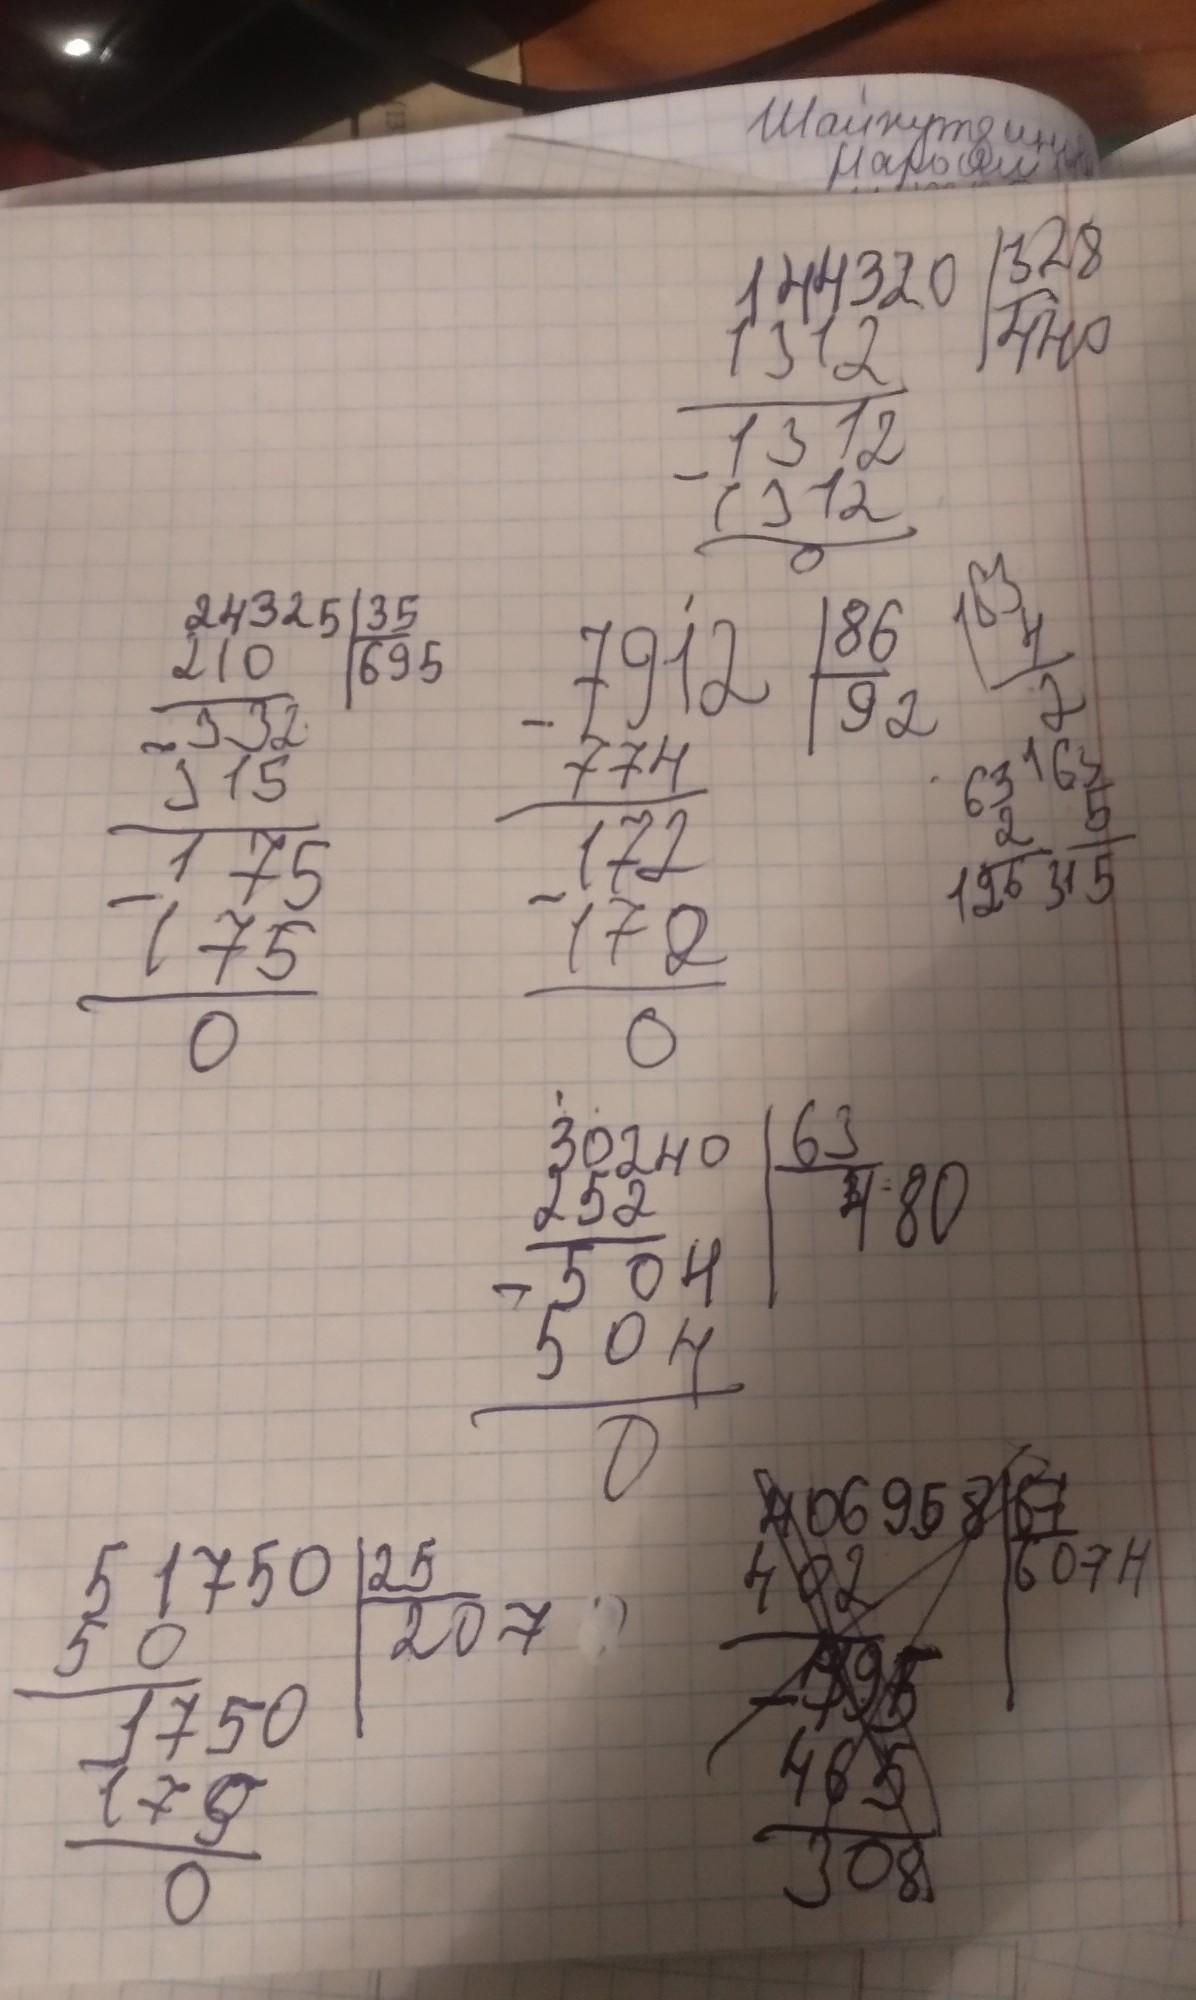 144320 328
1312 440
1312
- 1312
0
24325 35
210 695
- 332
315
175
- 175
0
7912 86
- 92
774
172
- 172
0
163
4
2
63
2
126
163
5
315
30240 63
252 480
- 504
504
0
51750 25
50 207
1750
175
0
406958 67
402 6074
- 495
465
308